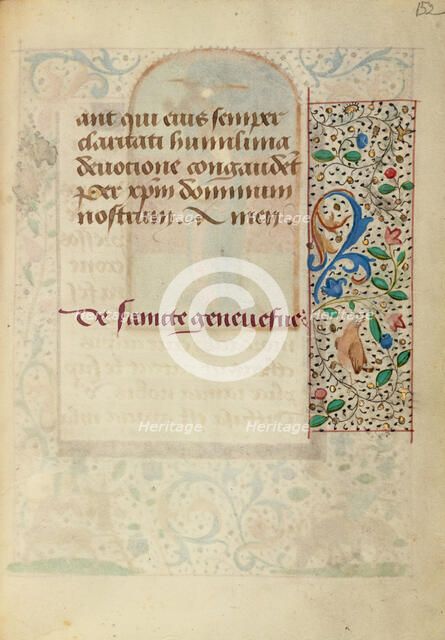 152
ant qui eius semper
claritati humilima
devotione congaudet
per xpm dominum
nostrum. Amen.
De sancte genevefue
Heritage Heritage
Heritage Heritage